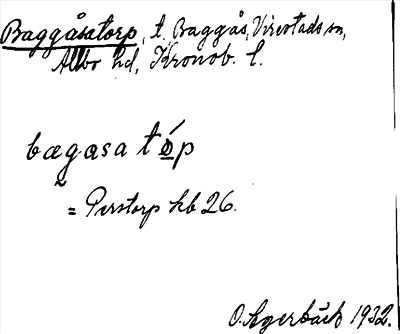 Baggåsatorp, t. Baggås, Virestads sn,
Allbo hd, Kronob. l.
bagasa tóp
= Perstorp kb 26.
O. Agerbäck 1932.